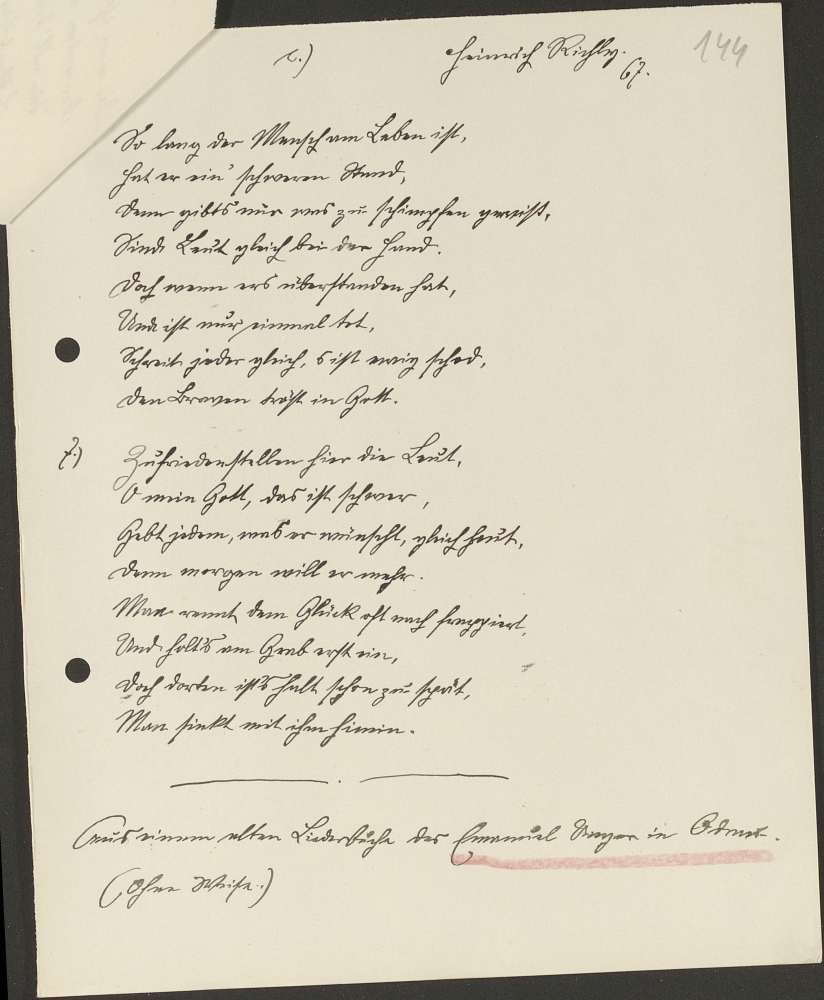 2.) Heinrich Richly.
67.
144
So lang der Mensch am Leben ist,
Hat er ein' schweren Stand,
Denn gibts nur was zu schimpfen gewiß,
Sind Leut gleich bei der Hand.
Doch wenn ers überstanden hat,
Und ist nur einmal tot,
Schreit jeder gleich, s ist ewig schad,
Den Braven tröst in Gott.
7.) Zufriedenstellen hier die Leut,
O mein Gott, das ist schwer,
Gebt jedem, was er wünscht, gleich heut,
Denn morgen will er mehr.
Man rennt dem Glück oft nach frappiert,
Und holt's am Grab erst ein,
Doch dorten ist's halt schon zu spät,
Man sinkt mit ihm hinein.
Aus einem alten Liederbuche des Emanuel in
(Ohne Weise.)